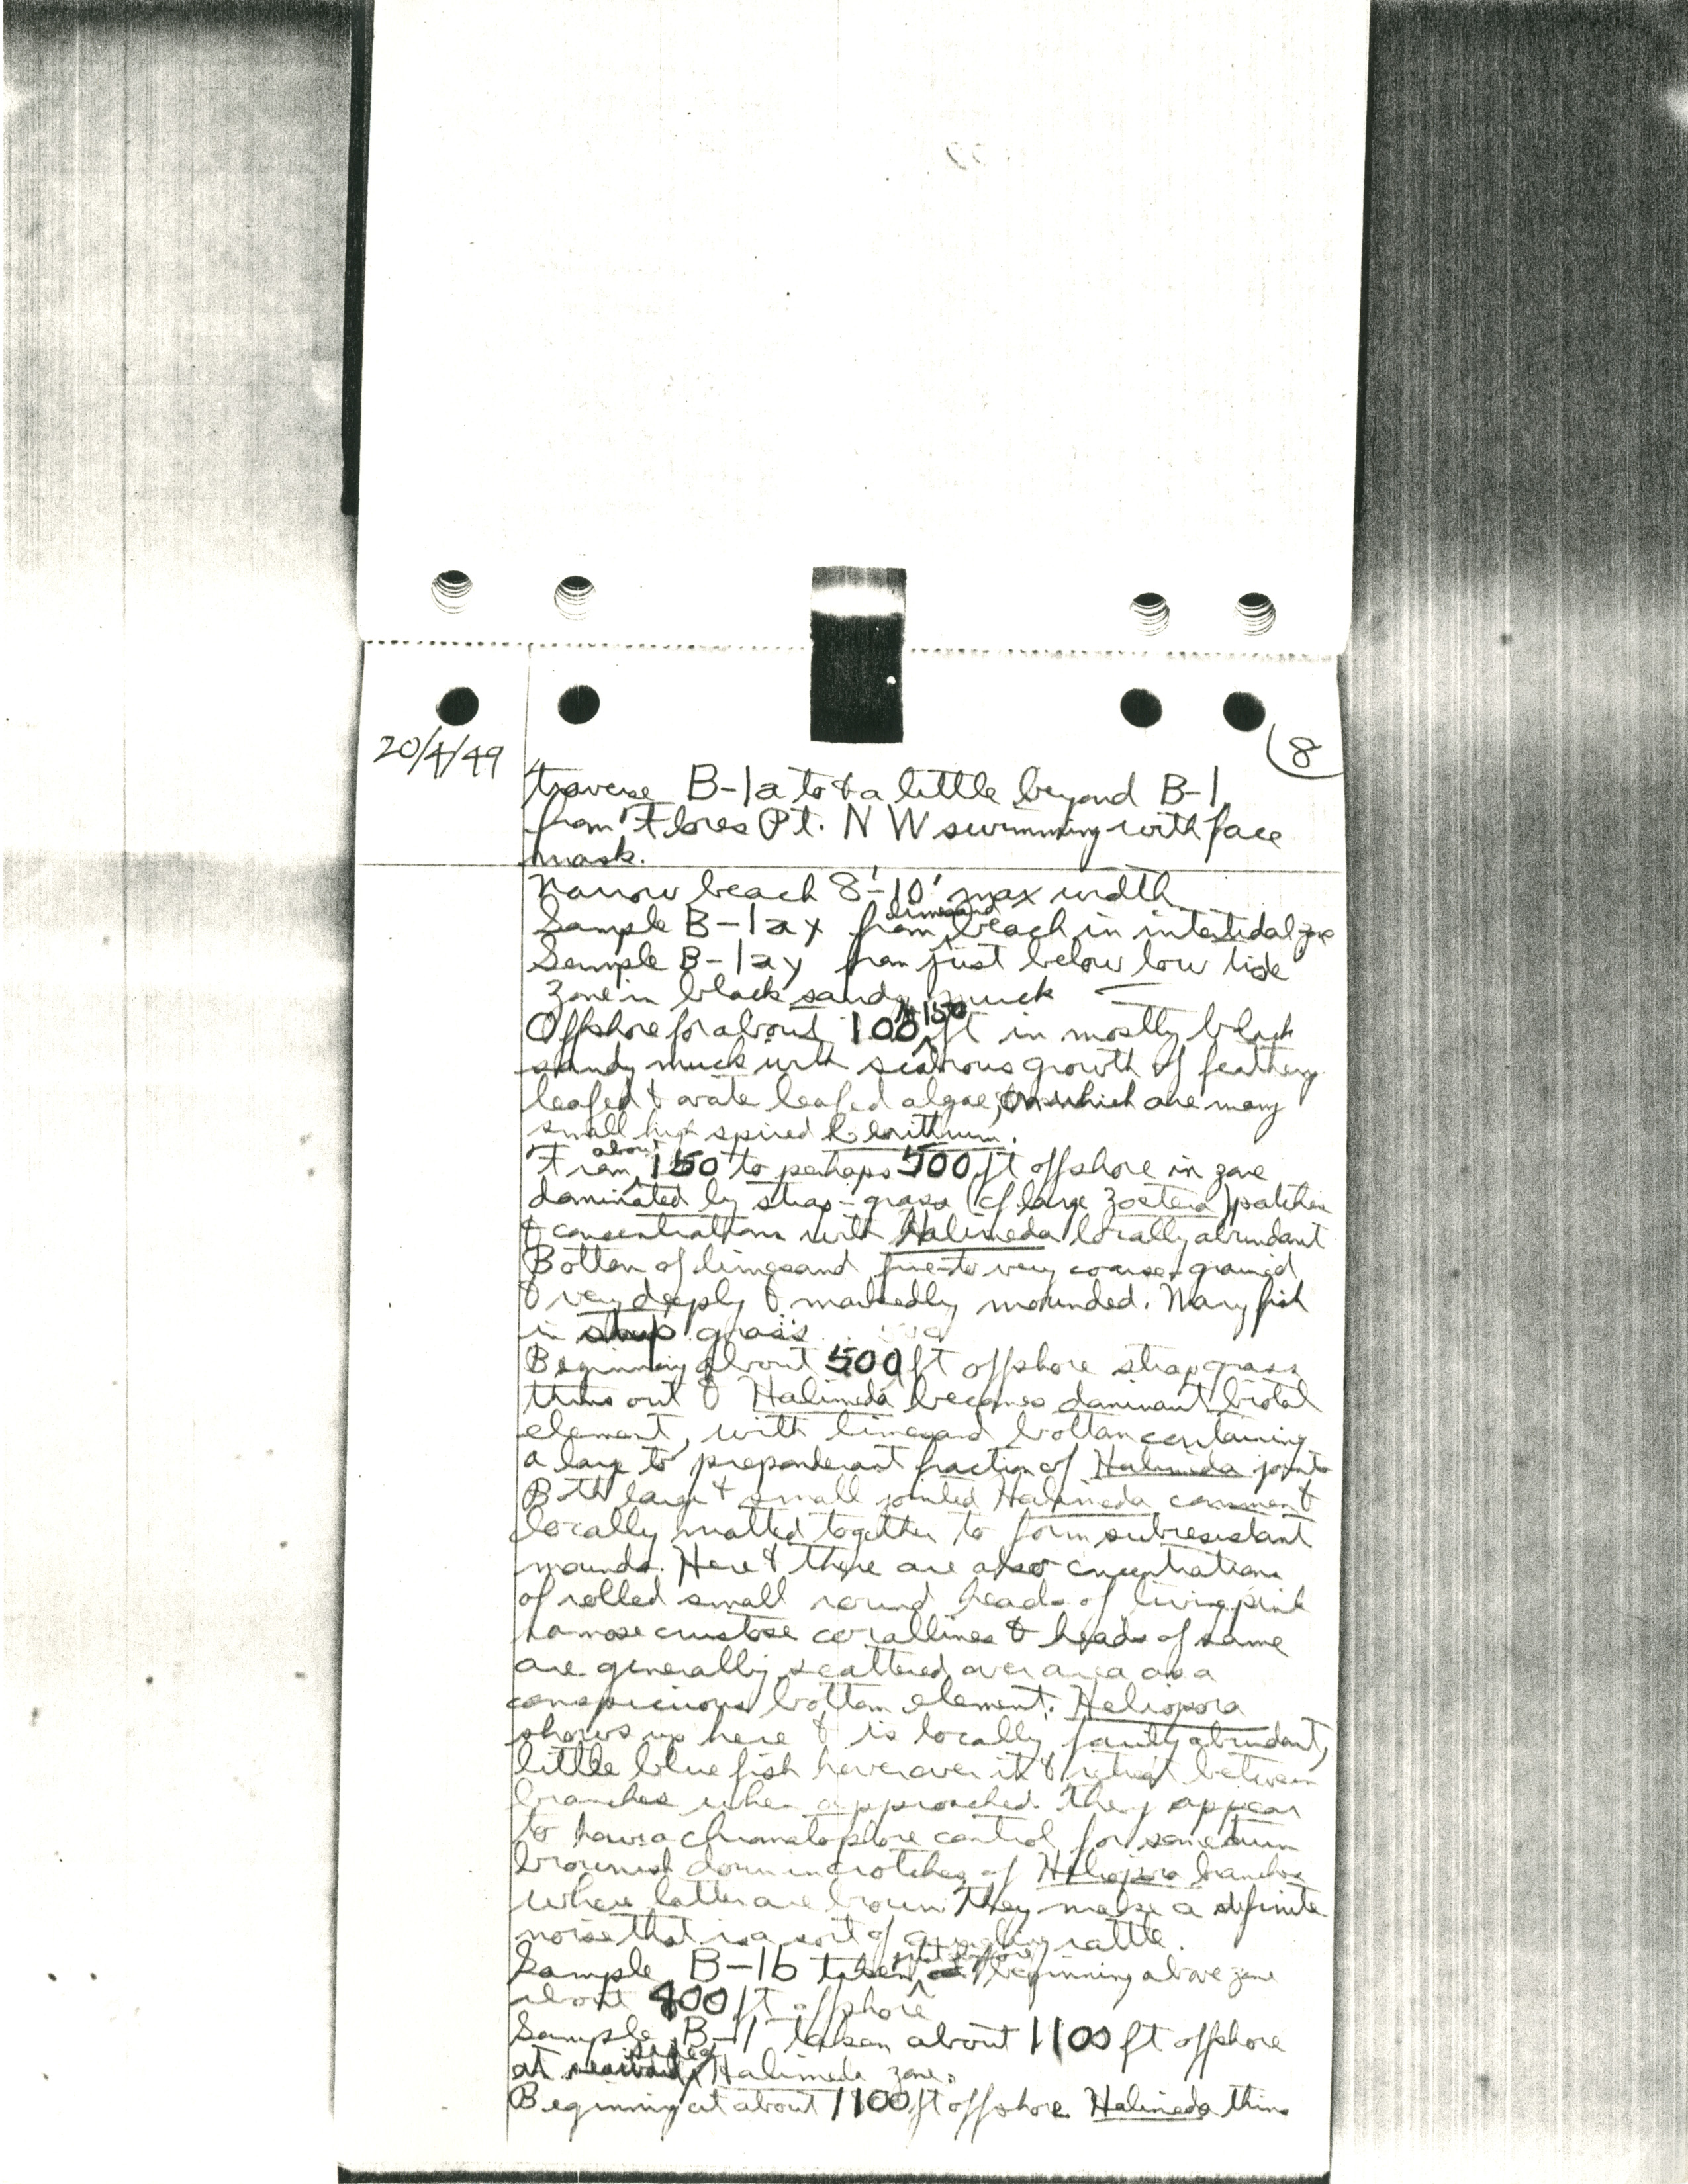 20/4/49
8
traverse B-1a to & a little beyond B-1
from Flores Pt. NW swimming with face
mask.
Narrow beach 8'-10' max width
Sample B-1ax from limesand beach in intertidal zone
Sample B-1ay from just below low tide
zone in black sandy muck
Offshore for about 100-150 ft in mostly black
sandy muck with growth of feathery
leafed & ovate leafed algae, on which are many
small high spired Cerithium.
From about 150 to perhaps 500 ft offshore in zone
dominated by strap-grass (cf large Zostera) patches
& concentrations with Halimeda locally abundant
Bottom of limesand fine to very coarse-grained
& very deeply & markedly mounded. Many fish
in strap grass
Beginning about 500 ft offshore strap grass
thins out & Halimeda becomes dominant biotal
element, with limesand bottom containing
a large to preponderant fraction of Halimeda joints
Both large & small jointed Halimeda common &
locally matted together to form subresistant
mounds. Here & there are also concentrations
of rolled small round heads of living pink
ramose crustose corallines & heads of same
are generally scattered over area as a
conspicuous bottom element. Heliopora
shows up here & is locally fairly abundant,
little blue fish hover over it & retreat between
branches when approached. They appear
to have a chromatophore control for some turn
brownish down in crotches of Heliopora branches
where latter are brown. They make a definite
noise that is a sort of rattle.
Sample B-1b taken just before beginning above zone
about 400 ft offshore
Sample B-1 taken about 1100 ft offshore
at seaward edge Halimeda zone.
Beginning at about 1100 ft offshore Halimeda thins